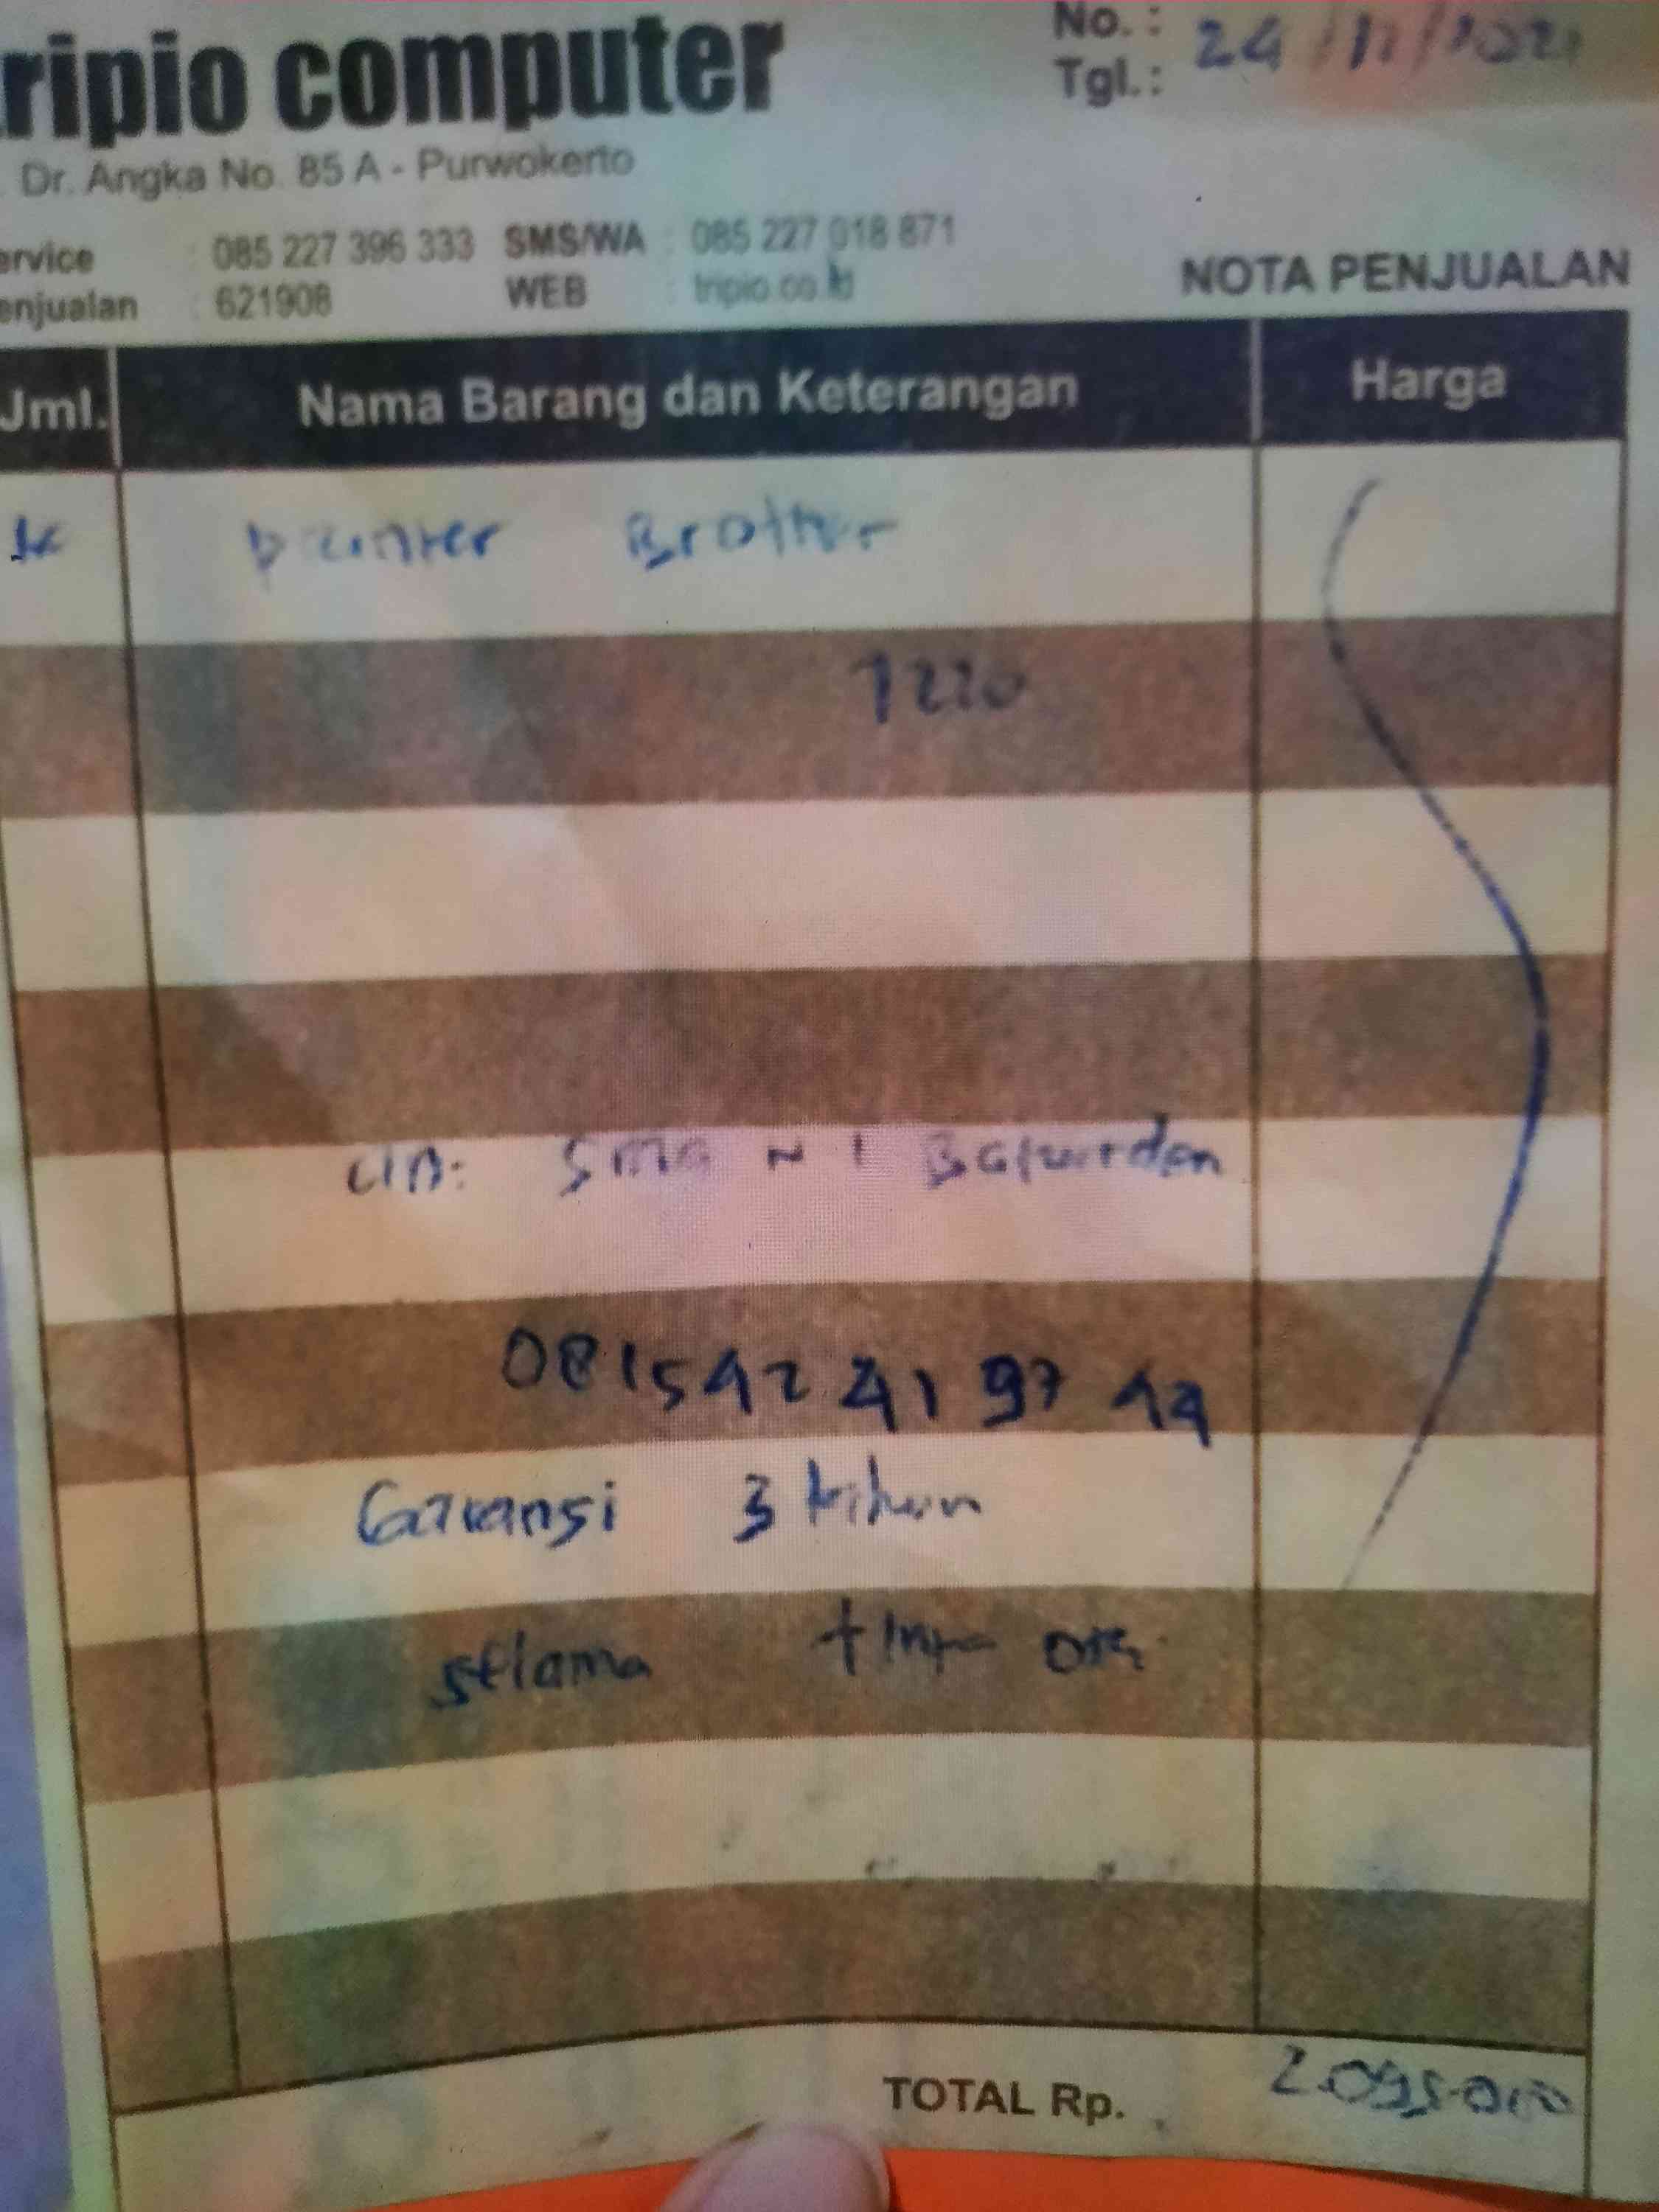 ripio computer
No. :
Tgl.: 24/11/2021
Dr. Angka No. 85 A - Purwokerto
ervice : 085 227 396 333 SMS/WA : 085 227 018 871
enjualan : 621908 WEB : tripio.co.id
NOTA PENJUALAN
Jml. Nama Barang dan Keterangan Harga
printer Brother
T220
SMA N 1
0815 42 41 97 44
Garansi 3 tahun
selama
TOTAL Rp. 2.095.000